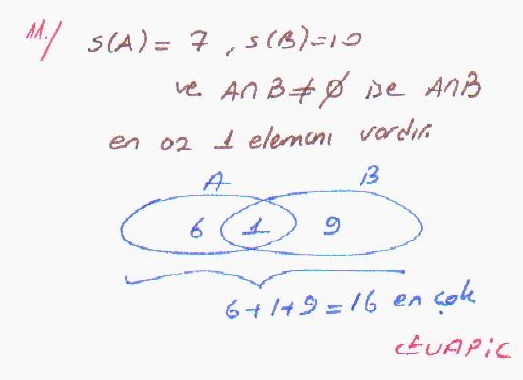 11./ s(A) = 7 , s(B)=10
ve A∩B ≠ ∅ ise A∩B
en az 1 elemanı vardır.
A B
6 1 9
6+1+9=16 en çok